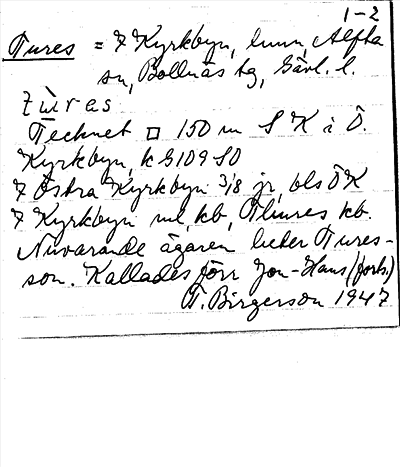 1-2
Tures = 7 Kyrkbyn, hmn, Alfta
sn, Bollnäs tg, Gävl. l.
tùres
Tecknet □ 150 m S K i Ö.
Kyrkbyn, k G109 SO
7 Östra Kyrkbyn 3/8 jr, bls ÖK
7 Kyrkbyn ml, kb, Thures kb.
Nuvarande ägaren heter Tures-
son. Kallades förr Jon-Hans (forts.)
T. Birgerson 1947